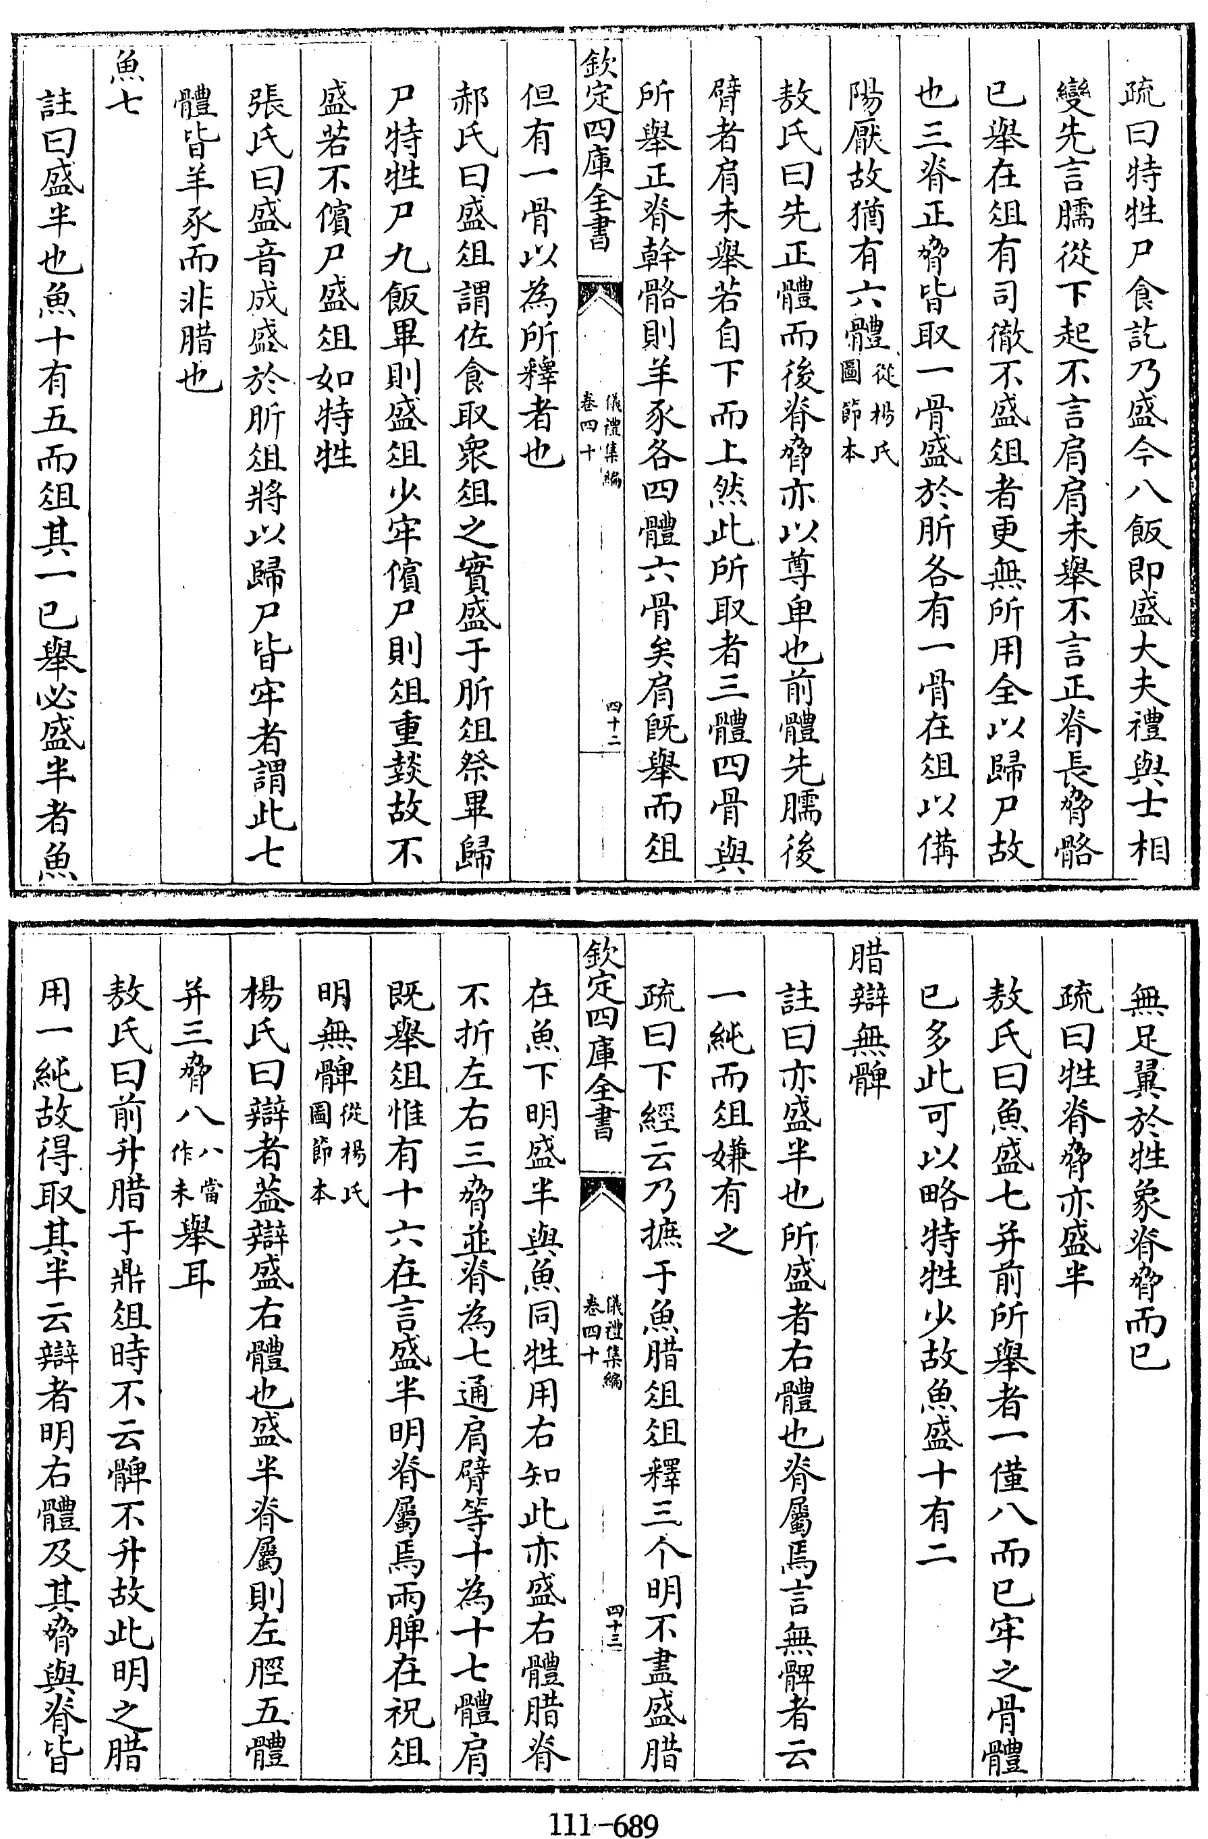 疏曰特牲尸食訖乃盛今八飯即盛大夫禮與士相
變先言臑從下起不言肩肩未舉不言正脊長脅骼
已舉在俎有司徹不盛俎者更無所用全以歸尸故
也三脊正脅皆取一骨盛於肵各有一骨在俎以備
陽厭故猶有六體從楊氏圖節本
敖氏曰先正體而後脊脅亦以尊卑也前體先臑後
臂者肩未舉若自下而上然此所取者三體四骨與
所舉正脊幹骼則羊豕各四體六骨矣肩既舉而俎
欽定四庫全書 儀禮集編卷四十 四十二
但有一骨以為所釋者也
郝氏曰盛俎謂佐食取衆俎之實盛于肵俎祭畢歸
尸特牲尸九飯畢則盛俎少牢儐尸則俎重燅故不
盛若不儐尸盛俎如特牲
張氏曰盛音成盛於肵俎將以歸尸皆牢者謂此七
體皆羊豕而非腊也
魚七
註曰盛半也魚十有五而俎其一已舉必盛半者魚
無足翼於牲象脊脅而已
疏曰牲脊脅亦盛半
敖氏曰魚盛七并前所舉者一僅八而已牢之骨體
已多此可以略特牲少故魚盛十有二
腊辯無髀
註曰亦盛半也所盛者右體也脊屬焉言無髀者云
一純而俎嫌有之
疏曰下經云乃摭于魚腊俎俎釋三个明不盡盛腊
欽定四庫全書 儀禮集編卷四十 四十三
在魚下明盛半與魚同牲用右知此亦盛右體腊脊
不折左右三脅並脊為七通肩臂等十為十七體肩
既舉俎惟有十六在言盛半明脊屬焉兩髀在祝俎
明無髀從楊氏圖節本
楊氏曰辯者葢辯盛右體也盛半脊屬則左脛五體
并三脅八八當作未舉耳
敖氏曰前升腊于鼎俎時不云髀不升故此明之腊
用一純故得取其半云辯者明右體及其脅與脊皆
111-689